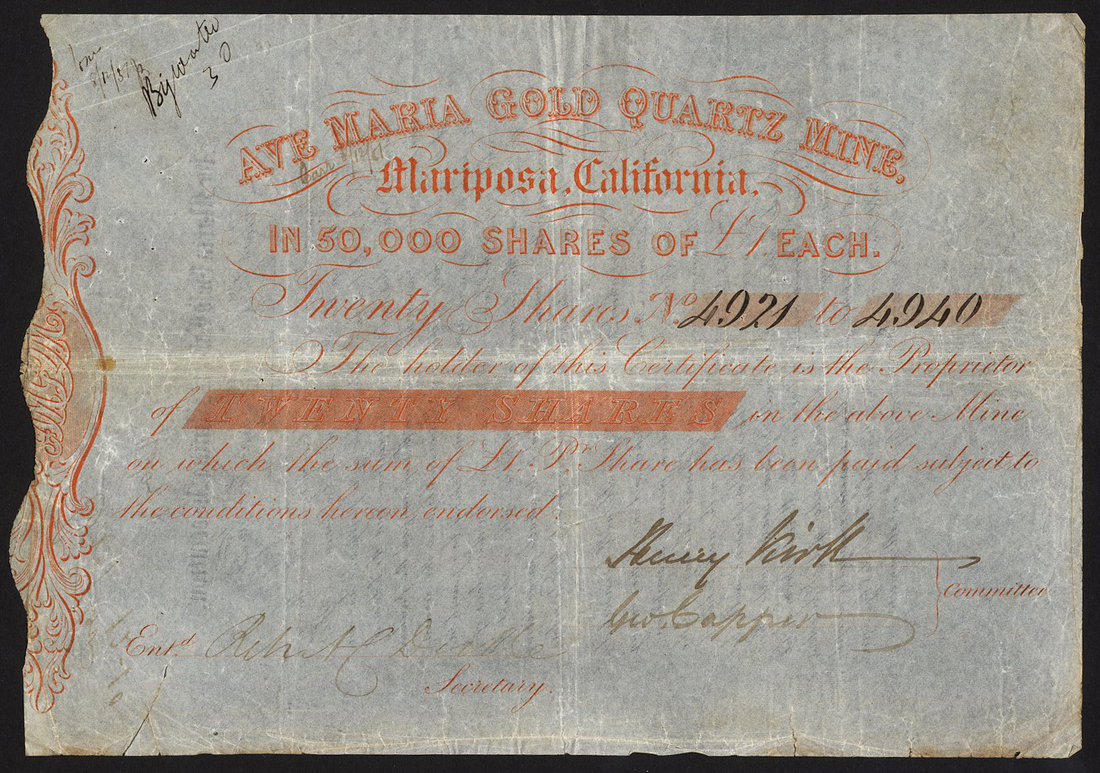 Bywater
30
AVE MARIA GOLD QUARTZ MINE,
Mariposa, California,
IN 50,000 SHARES OF £1. EACH.
Twenty Shares No 4921 to 4940
The holder of this Certificate is the Proprietor
of TWENTY SHARES in the above Mine
on which the sum of £1. Pr. Share has been paid subject to
the conditions hereon endorsed
Henry Kirk
Geo. Capper
Committee
Entd.
Secretary.